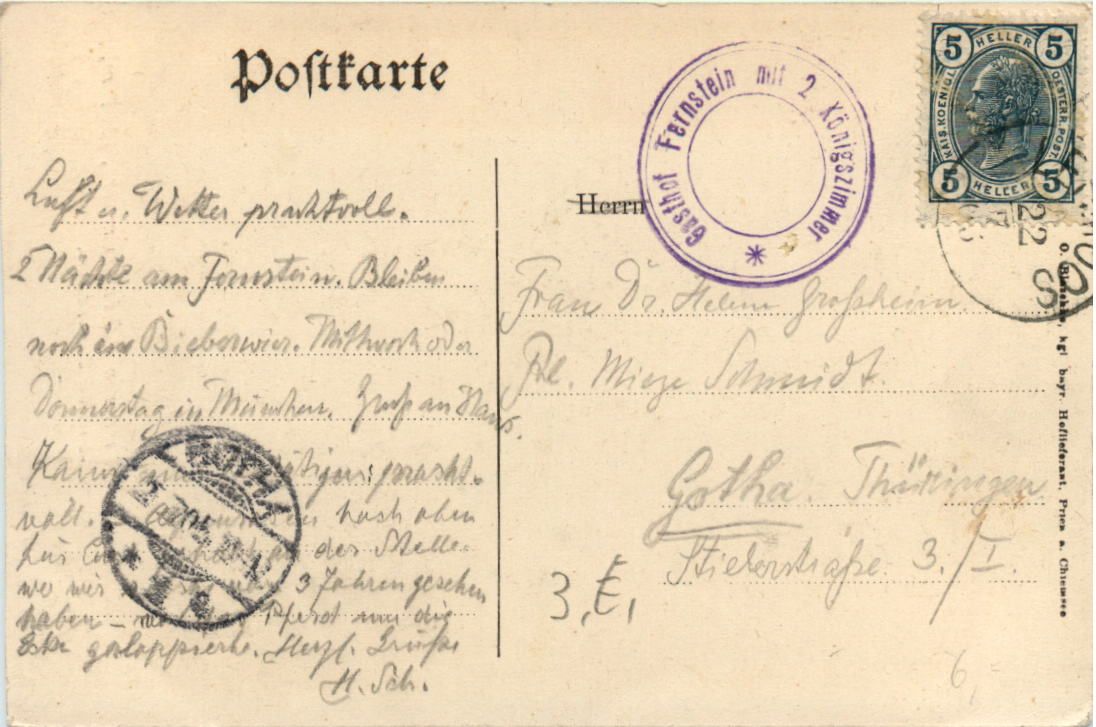 Postkarte
Gasthof Fernstein mit 2 Königszimmer
5 HELLER 5
KAIS. KOENIGL. OESTERR. POST.
5 HELLER 5
22
Herrn
Luft u. Wetter prachtvoll.
2 Nächte am Fernstein. Bleiben
noch in Bieberwier. Mittwoch oder
Donnerstag in München. Gruß an Hans.
pracht-
voll. hoch oben
der Stelle
wo wir 3 Jahren gesehen
haben – Pferd um die
Ecke galoppierte. Herzl. Grüße
H. Sch.
GOTHA
Frau Dr. Helene Großheim
Frl. Mieze Schmidt.
Gotha. Thüringen
Stielerstraße 3/I.
3,
6,
O. kgl. bayr. Hoflieferant, Prien a. Chiemsee